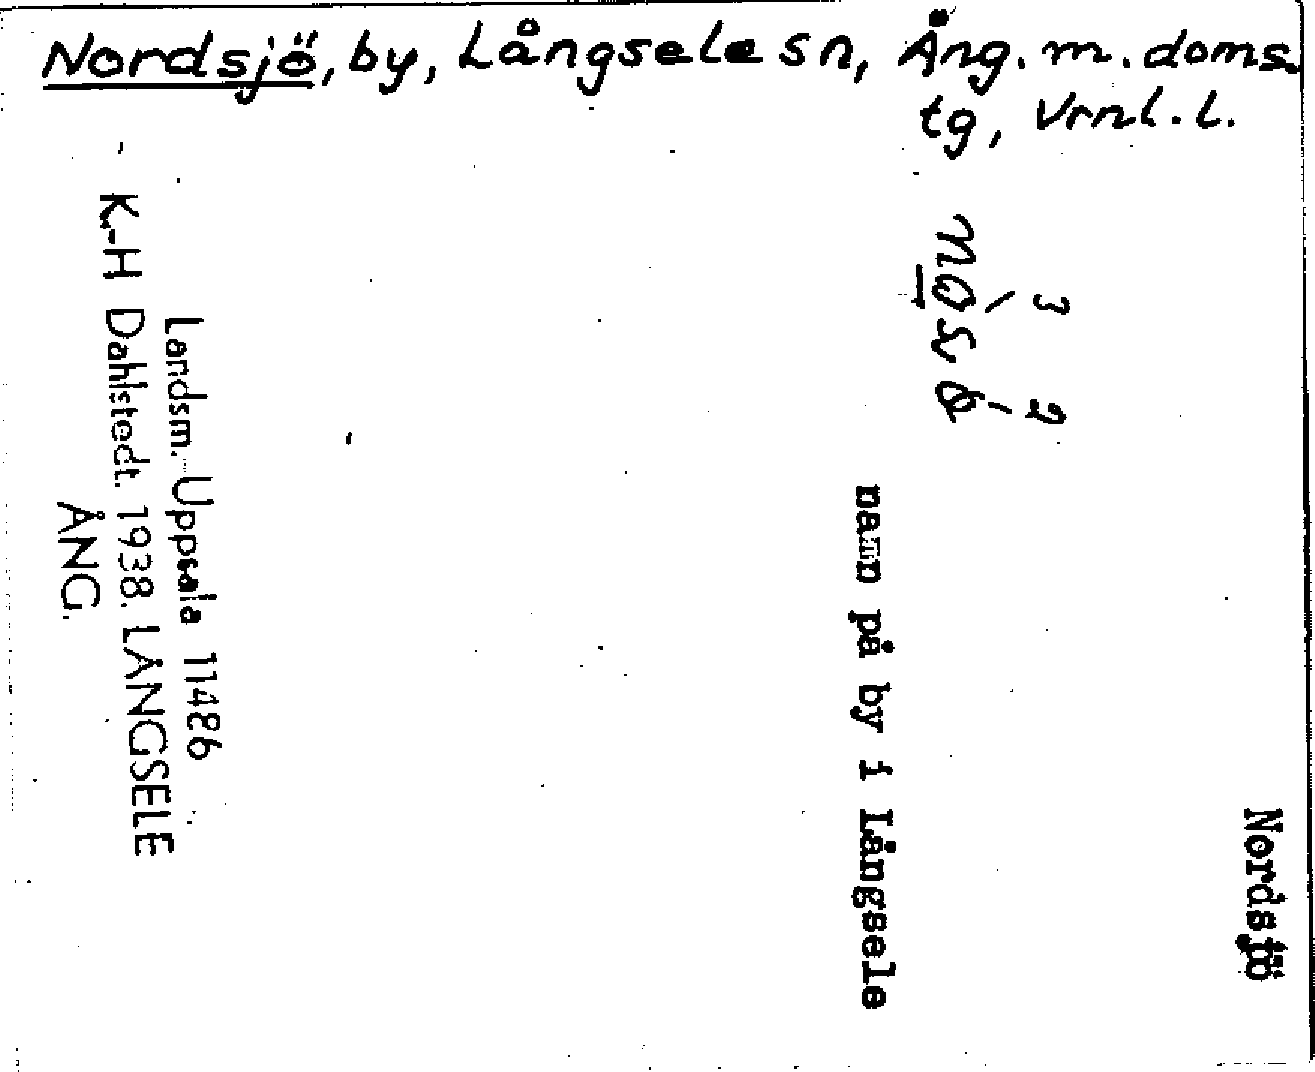 Nordsjö, by, Långsele sn, Ång. m. doms.
tg, Vrnl. l.
Nordsjö
3 2
namn på by i Långsele
Landsm. Uppsala 11486
K.-H Dahlstedt. 1938. LÅNGSELE
ÅNG.